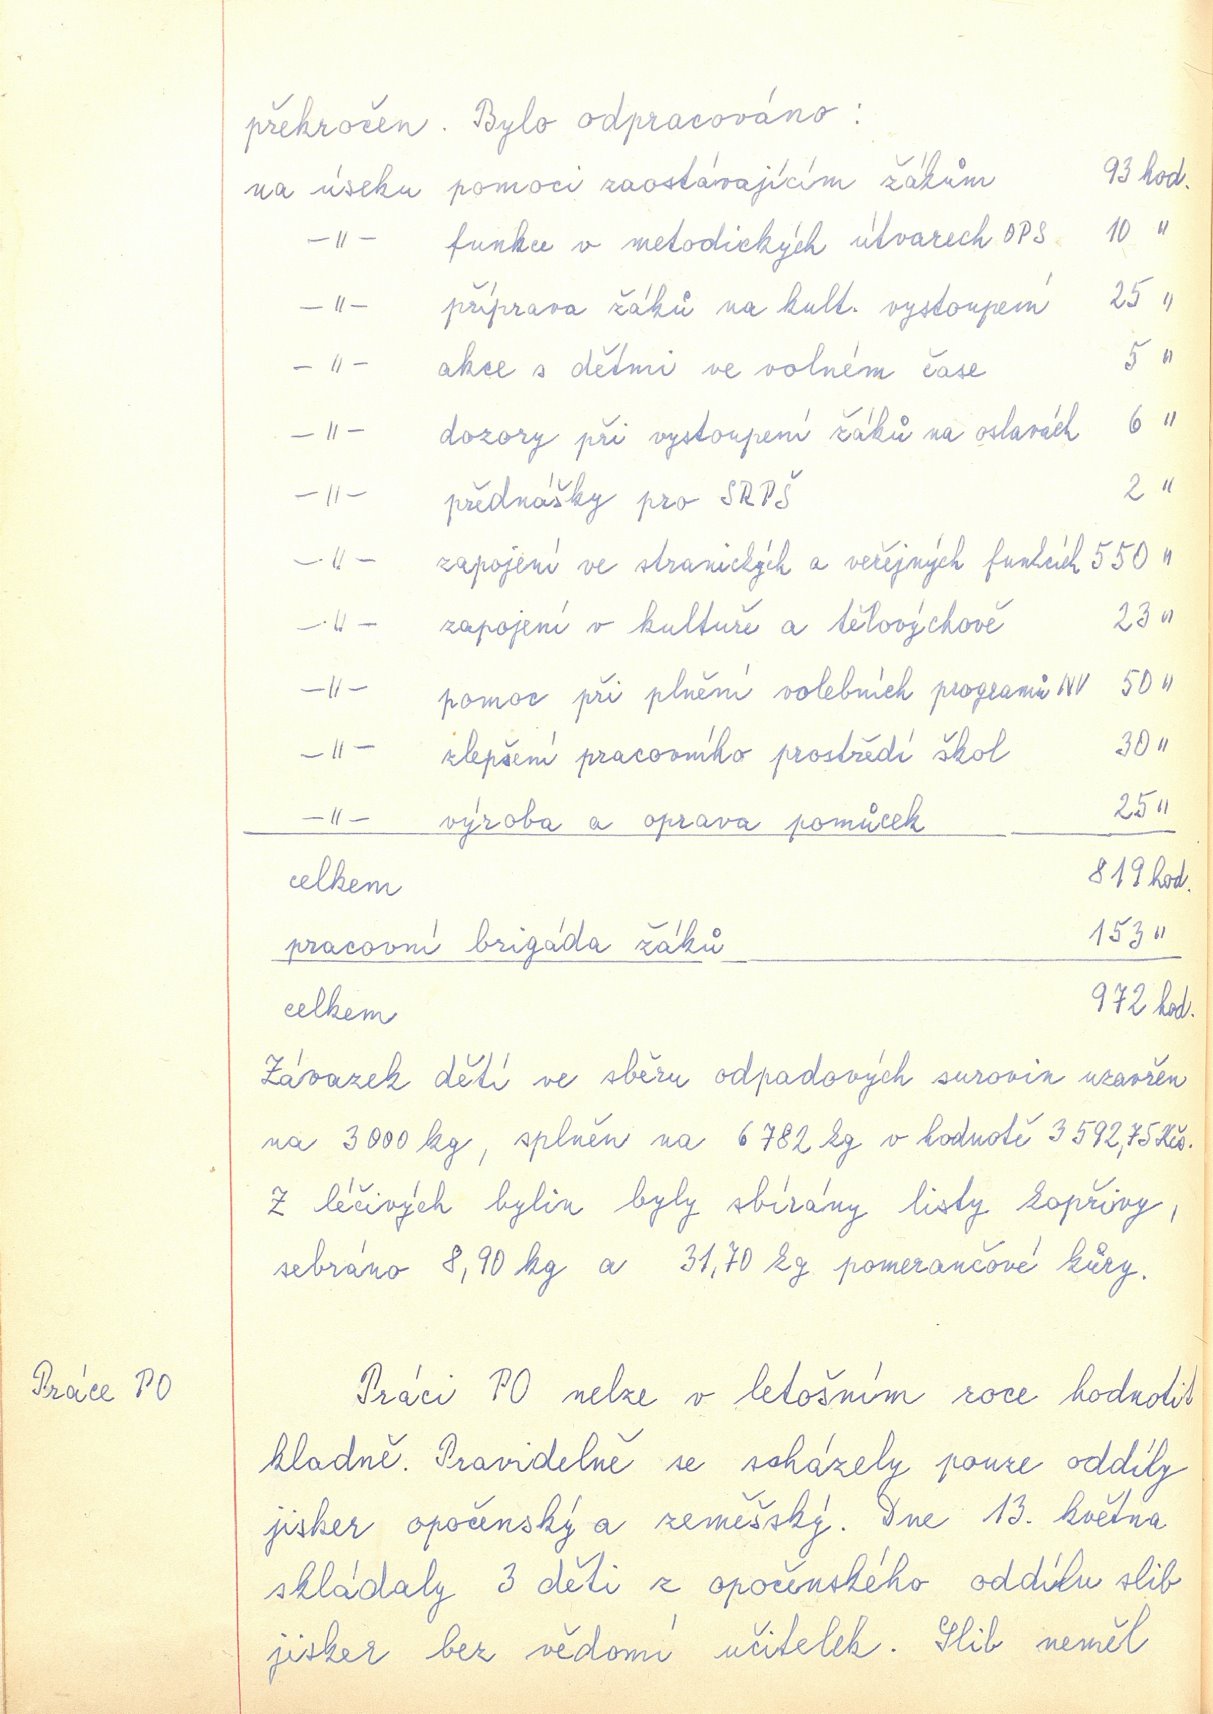 překročen. Bylo odpracováno:
na úseku pomoci zaostávajícím žákům 93 hod.
—"— funkce v metodických útvarech OPS 10 "
—"— příprava žáků na kult. vystoupení 25 "
—"— akce s dětmi ve volném čase 5 "
—"— dozory při vystoupení žáků na oslavách 6 "
—"— přednášky pro SRPŠ 2 "
—"— zapojení ve stranických a veřejných funkcích 550 "
—"— zapojení v kultuře a tělovýchově 23 "
—"— pomoc při plnění volebních programů NV 50 "
—"— zlepšení pracovního prostředí škol 30 "
—"— výroba a oprava pomůcek 25 "
celkem 819 hod.
pracovní brigáda žáků 153 "
celkem 972 hod.
Závazek dětí ve sběru odpadových surovin uzavřen
na 3000 kg, splněn na 6 782 kg v hodnotě 3 592,75 Kčs.
Z léčivých bylin byly sbírány listy kopřivy,
sebráno 8,90 kg a 31,70 kg pomerančové kůry.
Práce PO
Práci PO nelze v letošním roce hodnotit
kladně. Pravidelně se scházely pouze oddíly
jisker opočenský a zeměšský. Dne 13. května
skládaly 3 děti z opočenského oddílu slib
jisker bez vědomí učitelek. Slib neměl